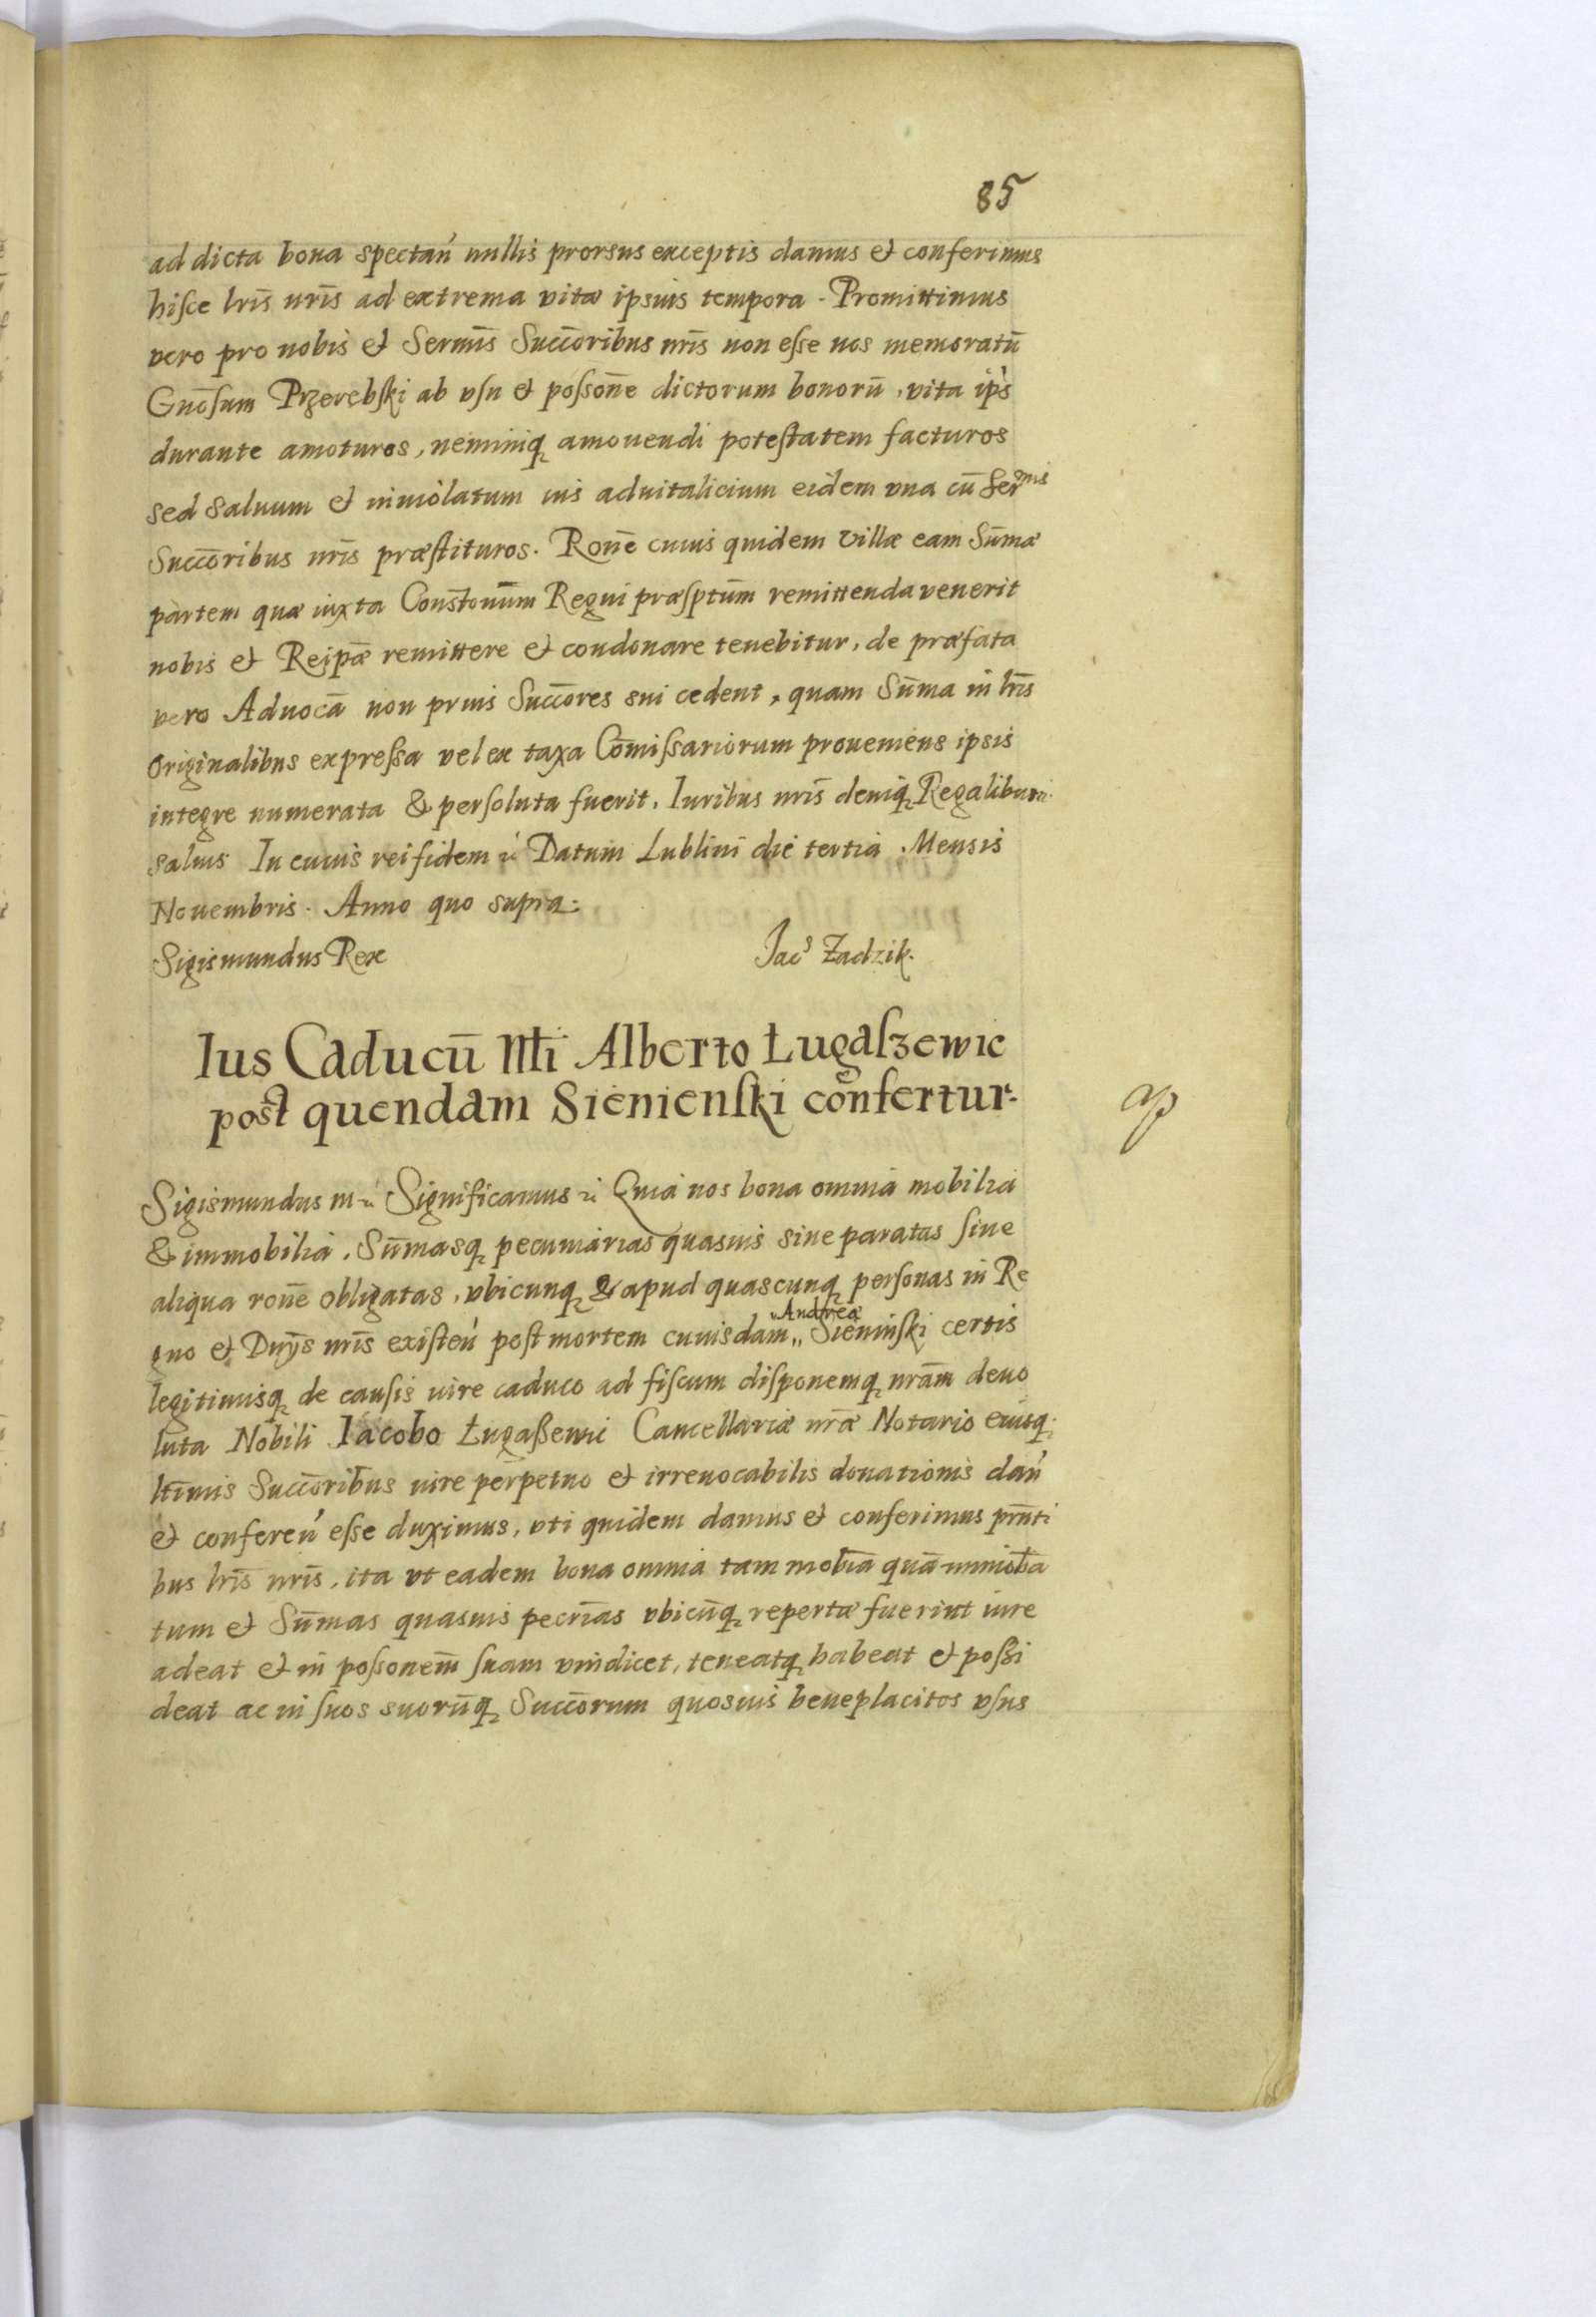 85
ad dicta bona spectań nullis prorsus exceptis damus et conferimus
hisce lrīs nrīs ad extrema vitæ ipsius tempora. Promittimus
vero pro nobis et Sermīs Succōribus nrīs non esse nos memoratū
Gnōsum Przerębski ab vsu et possonē dictorum bonorū, vita ip̄s
durante amoturos, neminiq₃ amouendi potestatem facturos
sed saluum et inuiolatum ius aduitalicium eidem vna cū Serᵐⁱˢ
Succōribus nrīs præstituros. Ronē cuius quidem villæ eam Sūmæ
partem quæ iuxta Constōnum Regni præsptūm remittenda venerit
nobis et Reipǣ remittere et condonare tenebitur, de præfata
vero Aduocā non prius Succōres sui cedent, quam Sūma in lrīs
originalibus expressa vel ex taxa Cōmissariorum proueniens ipsis
integre numerata & persoluta fuerit. Iuribus nrīs deniq₃ Regalibus
saluis In cuius rei fidem ẛ Datum Lublini die tertia Mensis
Nouembris. Anno quo supra.
Sigismundus Rex Jacˢ Zadzik.
Ius Caducū Nƚi Alberto Ługaszewic
post quendam Sienienski confertur.
Sigismundus III ẛ Significamus ẛ Quia nos bona omnia mobilia
& immobilia, Sūmasq₃ pecuniarias quasuis siue paratas siue
aliqua ronē obligatas, vbicunq₃ & apud quascunq₃ personas in Re
gno et Dnÿs nrīs existeń post mortem cuiusdam „ Andreæ Sieninski certis
legitimisq₃ de causis iure caduco ad fiscum disponemq₃ nrām deuo
luta Nobili Iacobo Ługaßewic Cancellariæ nrǣ Notario eiusq₃
ltīmis Succōribus iure perpetuo et irreuocabilis donationis dań
et confereń esse duximus, vti quidem damus et conferimus prn̄ti
bus lrīs nrīs, ita vt eadem bona omnia tam mobīa quā immobā
tum et Sūmas quasuis pecrīas vbicūq₃ repertæ fuerint iure
adeat et in possonem̄ suam vindicet, teneatq₃ habeat et possi
deat ac in suos suorūq₃ Succōrum quosuis beneplacitos vsus